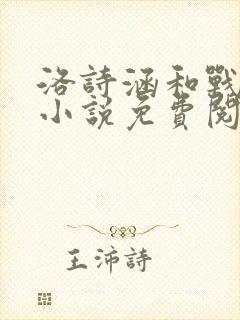 洛詩涵和戰
小說免費閱
王沛詩